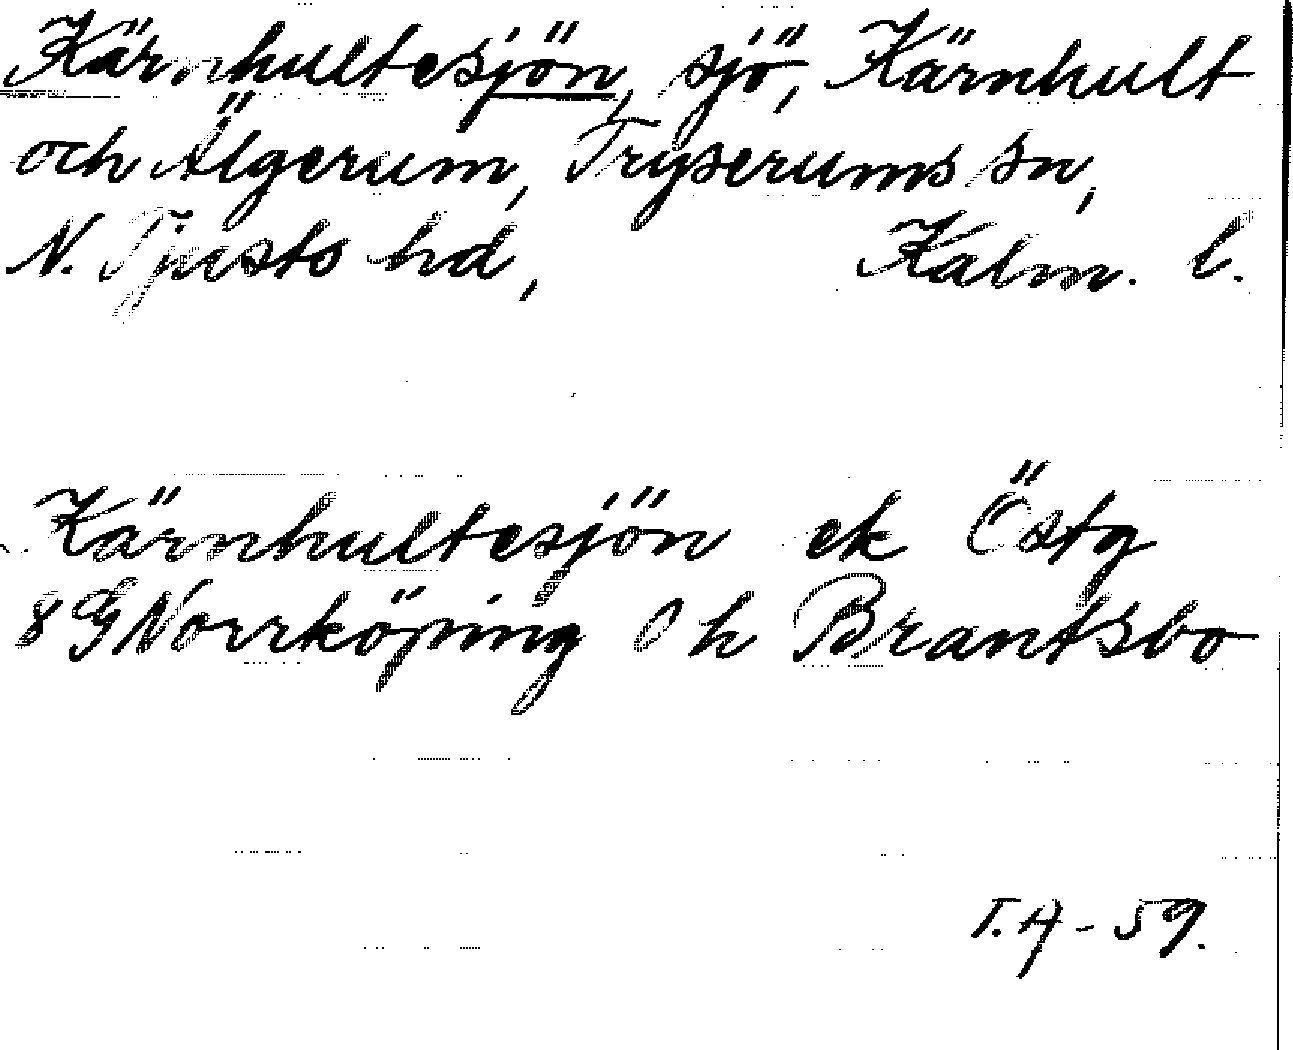 Kärnhultesjön, sjö, Kärnhult
och Älgerum, Tryserums sn,
N. Tjusts hd, Kalm. l.
Kärnhultesjön ek Östg
8G Norrköping O h Brantsbo
T.A-59.